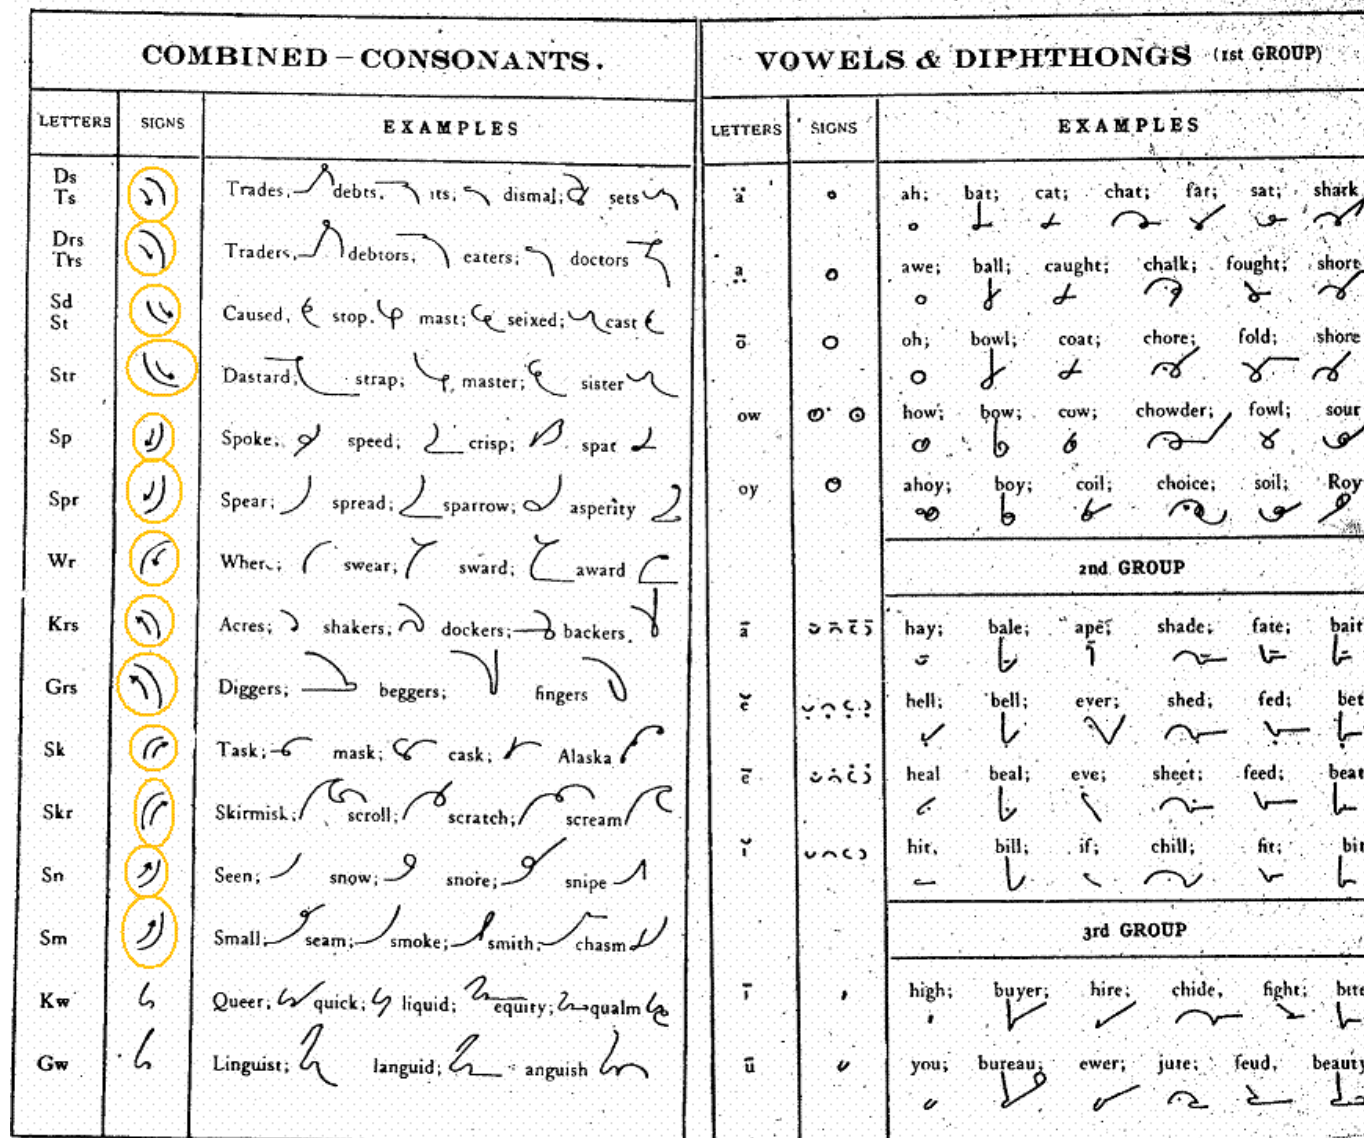 COMBINED – CONSONANTS.
LETTERS SIGNS EXAMPLES
Ds
Ts
Trades, debts, its, dismal; sets
Drs
Trs
Traders, debtors, eaters; doctors
Sd
St
Caused, stop. mast; seixed; cast
Str Dastard, strap; master; sister
Sp Spoke; speed; crisp; spat
Spr Spear; spread; sparrow; asperity
Wr Where; swear; sward; award
Krs Acres; shakers; dockers; backers.
Grs Diggers; beggers; fingers
Sk Task; mask; cask; Alaska
Skr Skirmish; scroll; scratch; scream
Sn Seen; snow; snore; snipe
Sm Small; seam; smoke; smith; chasm
Kw Queer; quick; liquid; equity; qualm
Gw Linguist; languid; anguish
VOWELS & DIPHTHONGS (1st GROUP)
LETTERS SIGNS EXAMPLES
ä ah; bat; cat; chat; far; sat; shark
a̤ awe; ball; caught; chalk; fought; short
ō oh; bowl; coat; chore; fold; shore
ow how; bow; cow; chowder; fowl; sour
oy ahoy; boy; coil; choice; soil; Roy
2nd GROUP
ā hay; bale; ape; shade; fate; bait
ĕ hell; bell; ever; shed; fed; bet
ē heal beal; eve; sheet; feed; beat
ĭ hit, bill; if; chill; fit; bit
3rd GROUP
ī high; buyer; hire; chide, fight; bite
ū you; bureau; ewer; jute; feud, beauty